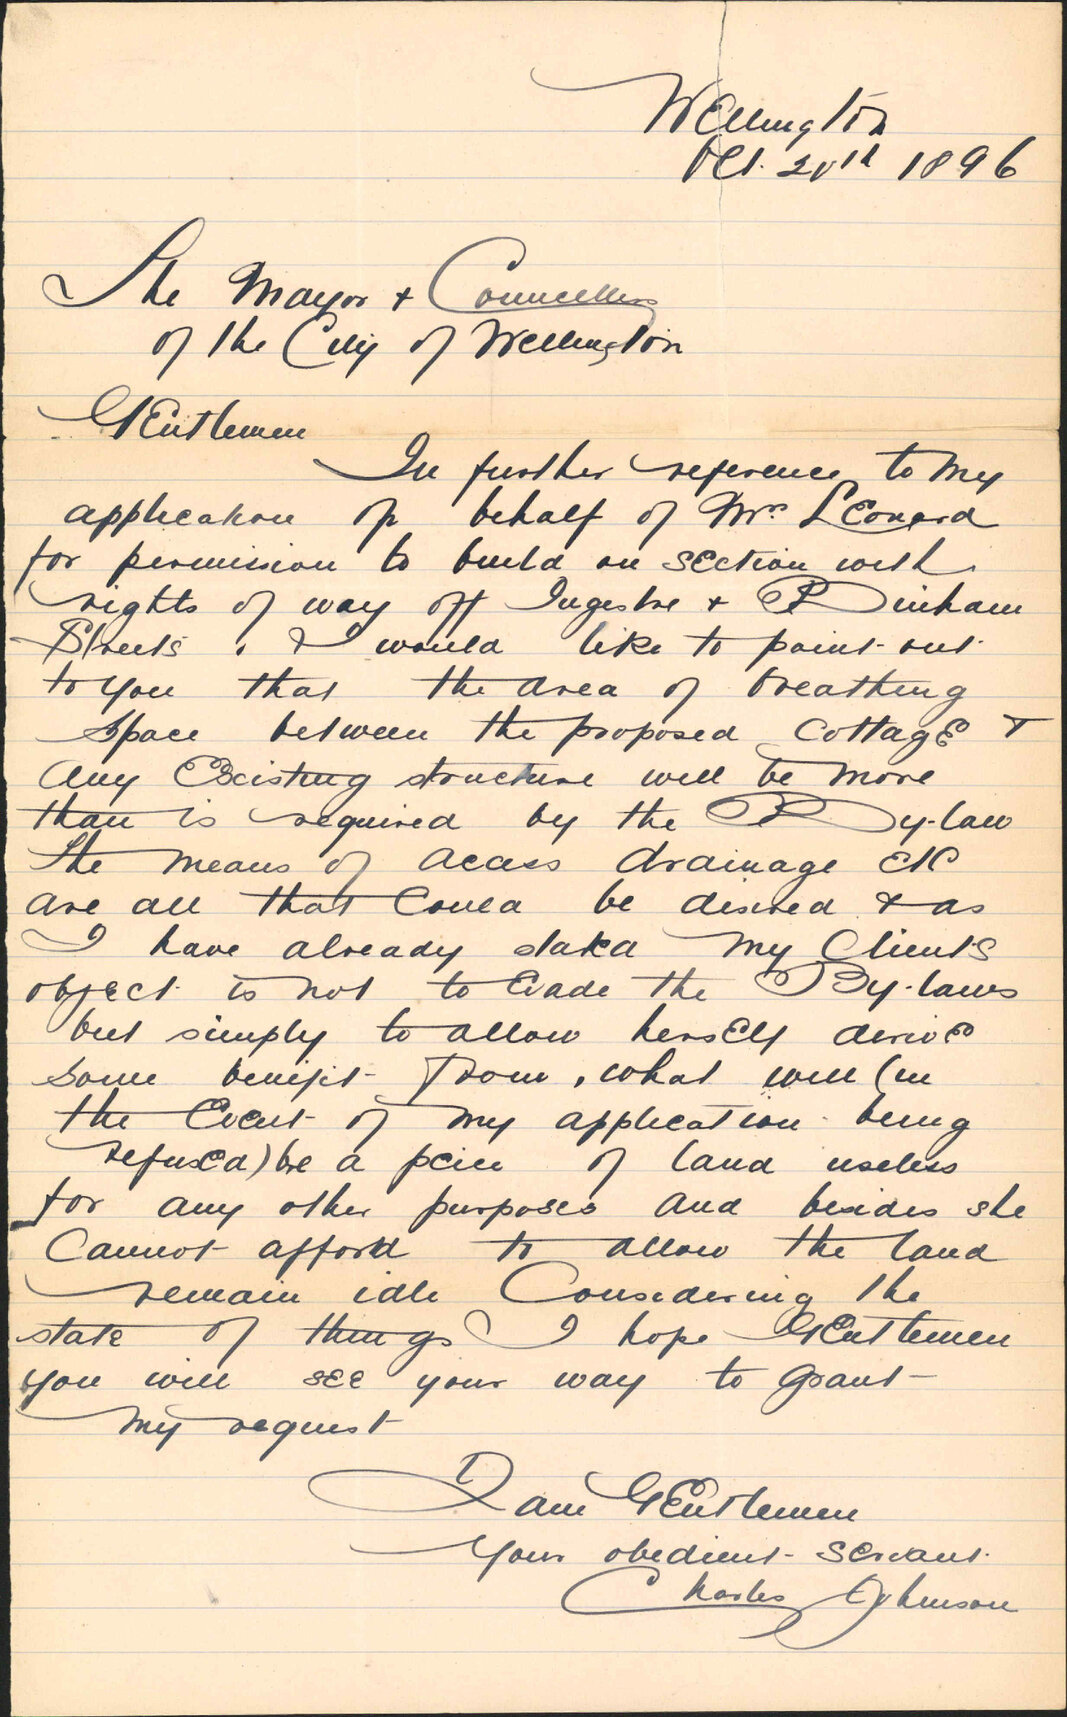 Wellington
Oct. 20th 1896
The Mayor + Councellers
of the City of Wellington
Gentlemen
In further reference to my
application on behalf of Mrs Leonard
for permission to build on section with
rights of way off Ingestre + Dinham
Streets, I would like to point out
to you that the area of breathing
space between the proposed cottage +
any Existing structure will be more
than is required by the By-law
The means of acess drainage etc
are all that could be disired + as
I have already stated my Clients
object is not to Evade the By-laws
but simply to allow herself derive
some benefit from, what will (in
the Event of my application being
refused) be a peice of land useless
for any other purposes and besides she
Cannot afford to allow the land
remain idle Considering the
state of things I hope Gentlemen
you will see your way to grant
my request
I am Gentlemen
Your obedient servant
Charles Johnson